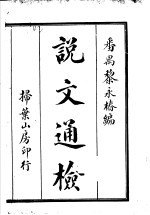 番禺黎永椿編
說文通檢
掃葉山房印行